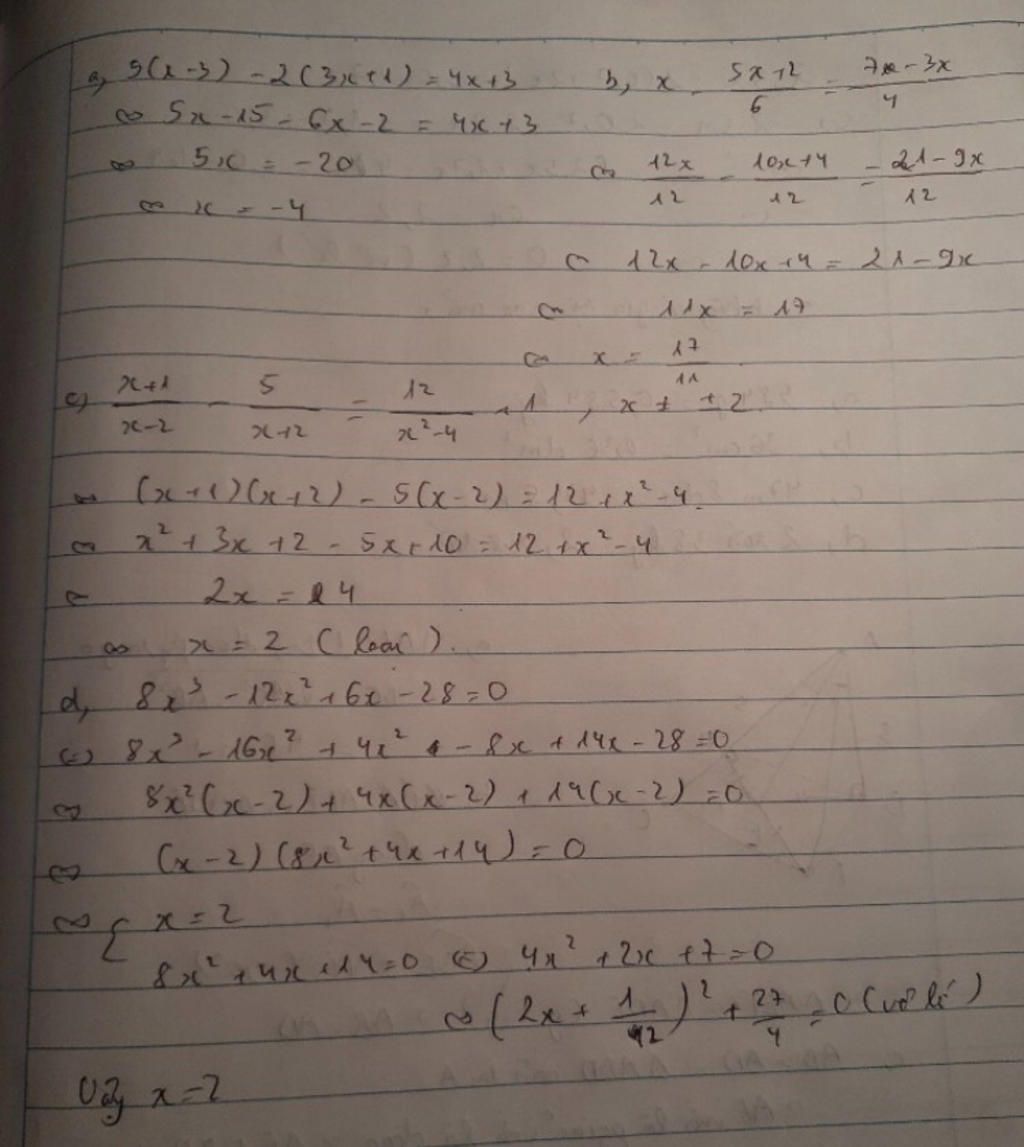 a, 5(x-3) - 2(3x+1) = 4x+3
⇔ 5x-15 - 6x-2 = 4x+3
⇔ 5x = -20
⇔ x = -4
b, x - (5x+2)/6 = (7x-3x)/4
⇔ 12x/12 - (10x+4)/12 = (21-9x)/12
⇔ 12x - 10x+4 = 21-9x
⇔ 11x = 17
⇔ x = 17/11
c) (x+1)/(x-2) - 5/(x+2) = 12/(x²-4) + 1 , x ≠ ±2
⇔ (x+1)(x+2) - 5(x-2) = 12+x²-4
⇔ x² + 3x + 2 - 5x+10 = 12+x²-4
⇔ 2x = 4
⇔ x = 2 (loại).
d, 8x³ - 12x² + 6x - 28 = 0
⇔ 8x³ - 16x² + 4x² - 8x + 14x - 28 = 0
⇔ 8x²(x-2) + 4x(x-2) + 14(x-2) = 0
⇔ (x-2)(8x²+4x+14) = 0
⇔ { x = 2
8x²+4x+14=0 ⇔ 4x²+2x+7=0
⇔ (2x + 1/2)² + 27/4 = 0 (vô lí)
Vậy x=2